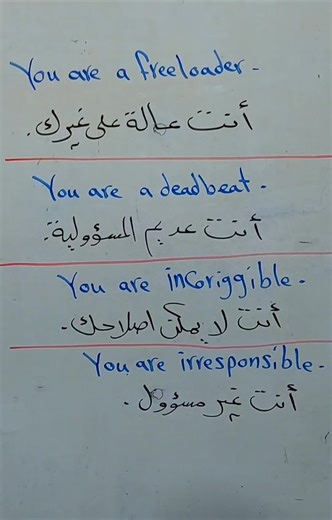 You are a freeloader.
أنت عالة على غيرك.
You are a deadbeat.
أنت عديم المسؤولية.
You are incoriggible.
أنت لا يمكن اصلاحك.
You are irresponsible.
أنت غير مسؤول.